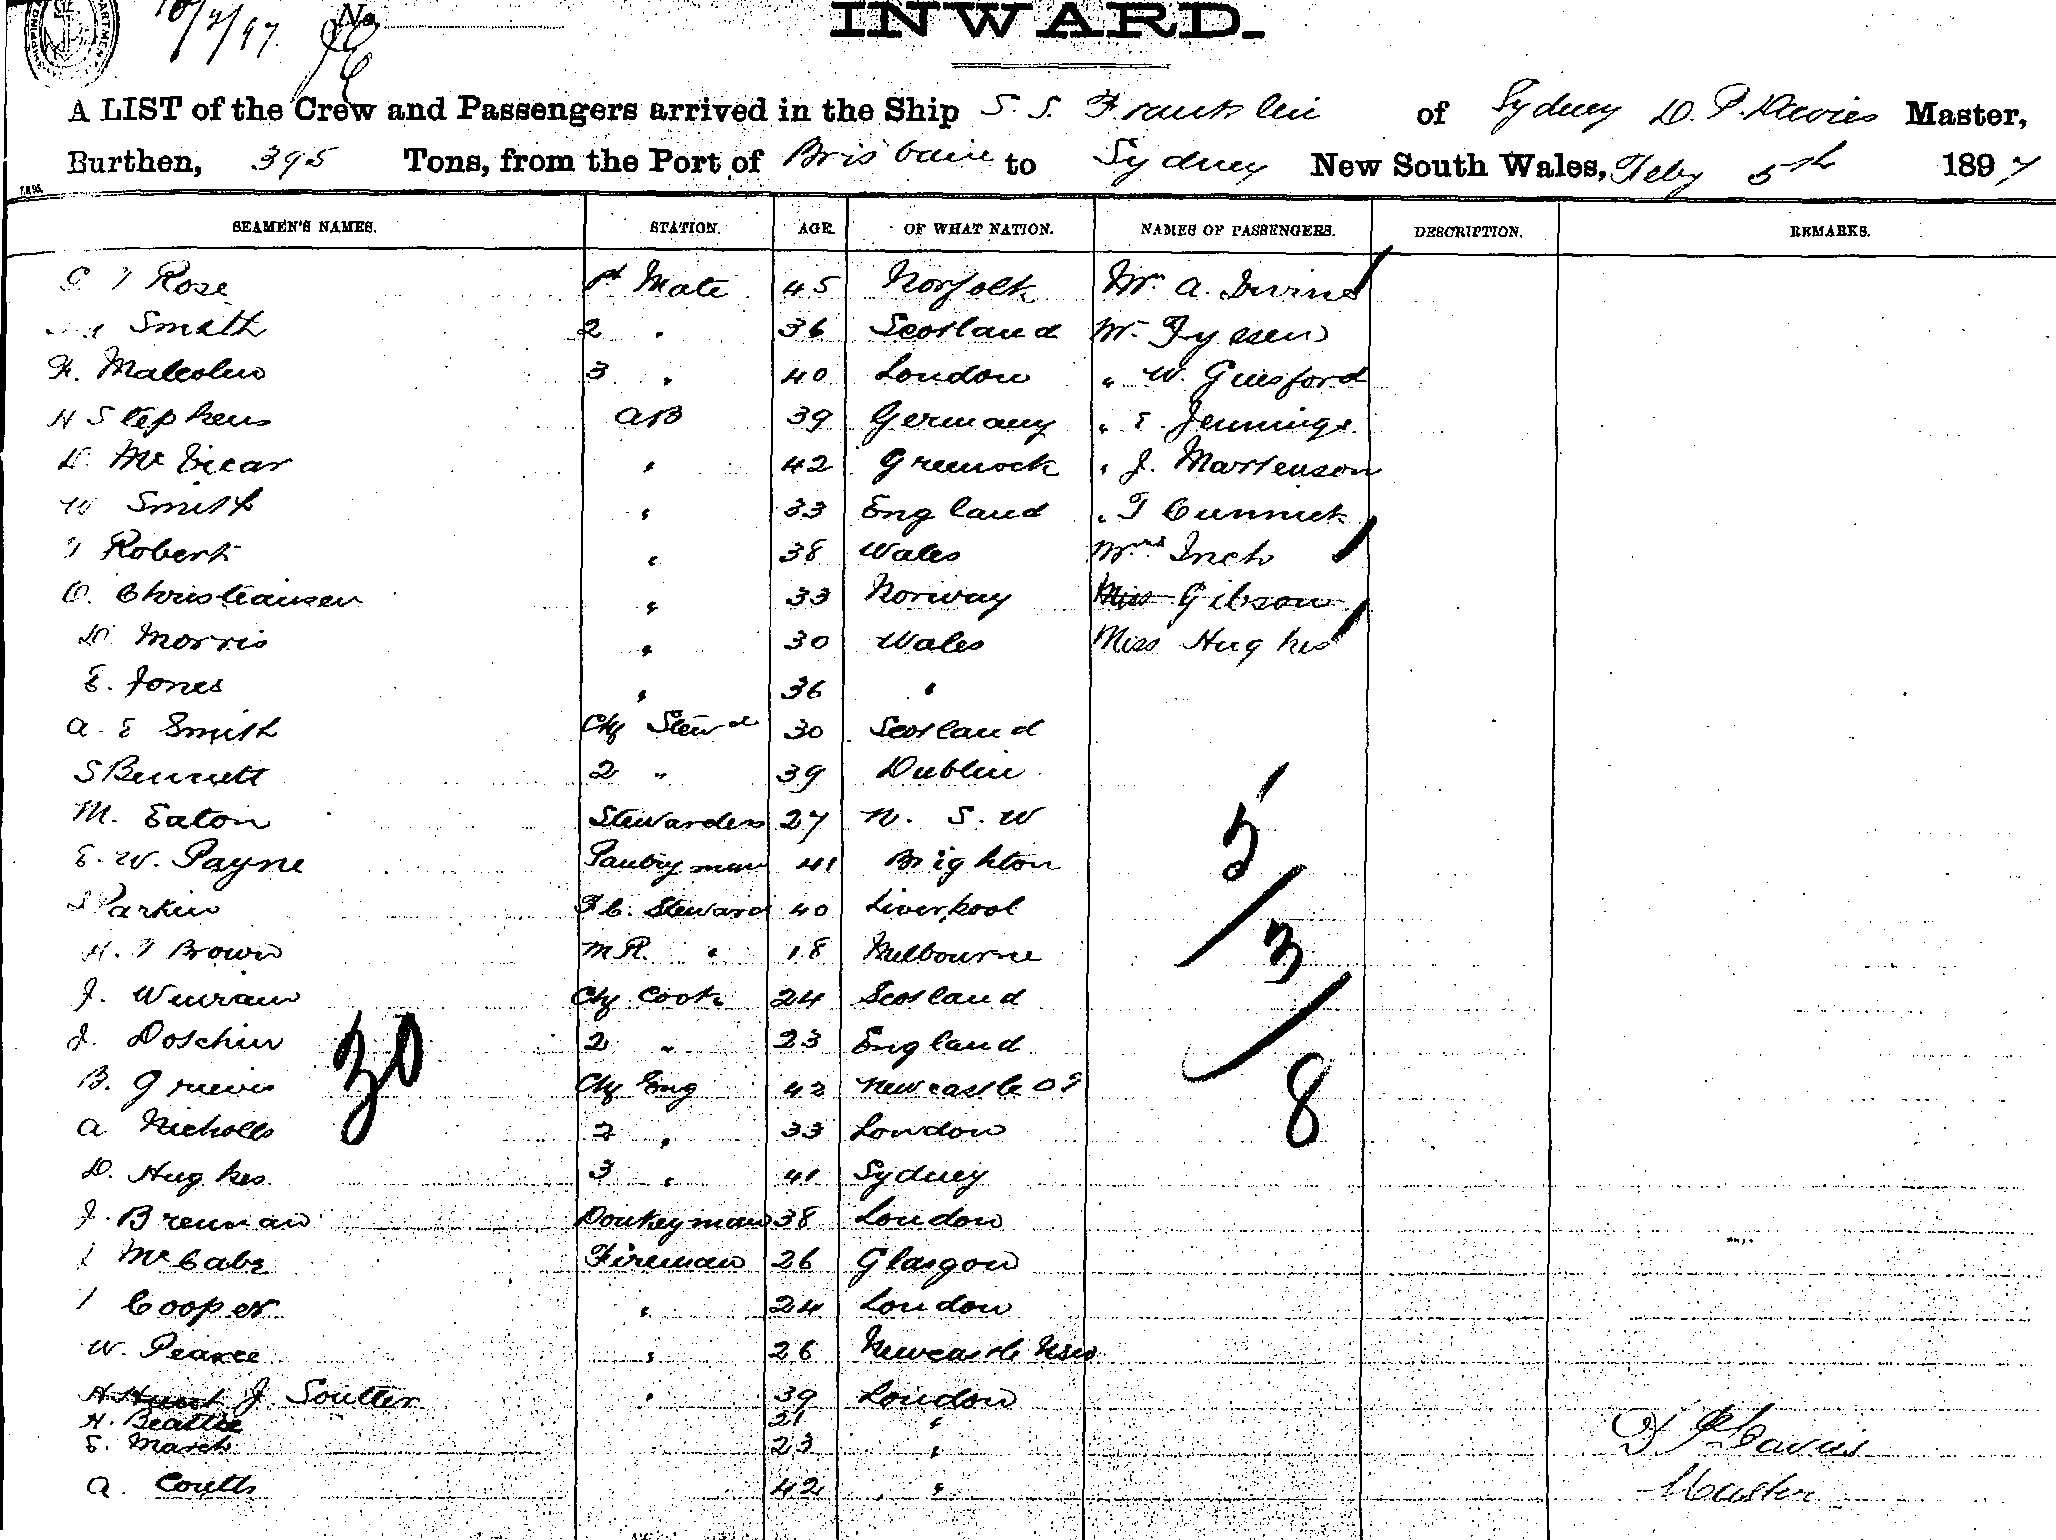 10/2/97. No
INWARD.
A LIST of the Crew and Passengers arrived in the Ship S. S. Franklin of Sydney D. P. Davies Master,
Burthen, 395 Tons, from the Port of Brisbane to Sydney New South Wales, Feby 5th 1897
SEAMEN'S NAMES. STATION. AGE. OF WHAT NATION. NAMES OF PASSENGERS. DESCRIPTION. REMARKS.
Rose 1st Mate 45 Norfolk Mr. A.
Smith 2 " 36 Scotland Mr.
Malcolm 3 " 40 London " W.
H Stephens AB 39 Germany " E. Jennings
D. McVicar " 42 Greenock " J. Martenson
W Smith " 33 England "
Robert " 38 Wales Mrs Inch
O. Christiansen " 33 Norway Miss Gibson
D. Morris " 30 Wales Miss Hughes
E. Jones " 36 "
A. E Smith Chf Stewd 30 Scotland
S Bennett 2 " 39 Dublin
M. Eaton Stewardess 27 N. S. W
5
E. W. Payne Pantryman 41 Brighton
Parkin F. C. Steward 40 Liverpool
3
H. T Brown M R. " 18 Melbourne
J. Chf Cook 24 Scotland
30
J. 2 " 23 England
8
B. Chf Eng 42 Newcastle
A Nicholls 2 " 33 London
D. Hughes 3 " 41 Sydney
J. Brennan Donkeyman 38 London
McCabe Fireman 26 Glasgow
Cooper " 24 London
W. Pearce " 26 Newcastle NSW
H Hunt J. Soutter " 39 London
H. Beattie 21 "
E. March 23 "
D P Davies
A. Coutts 42 "
Master